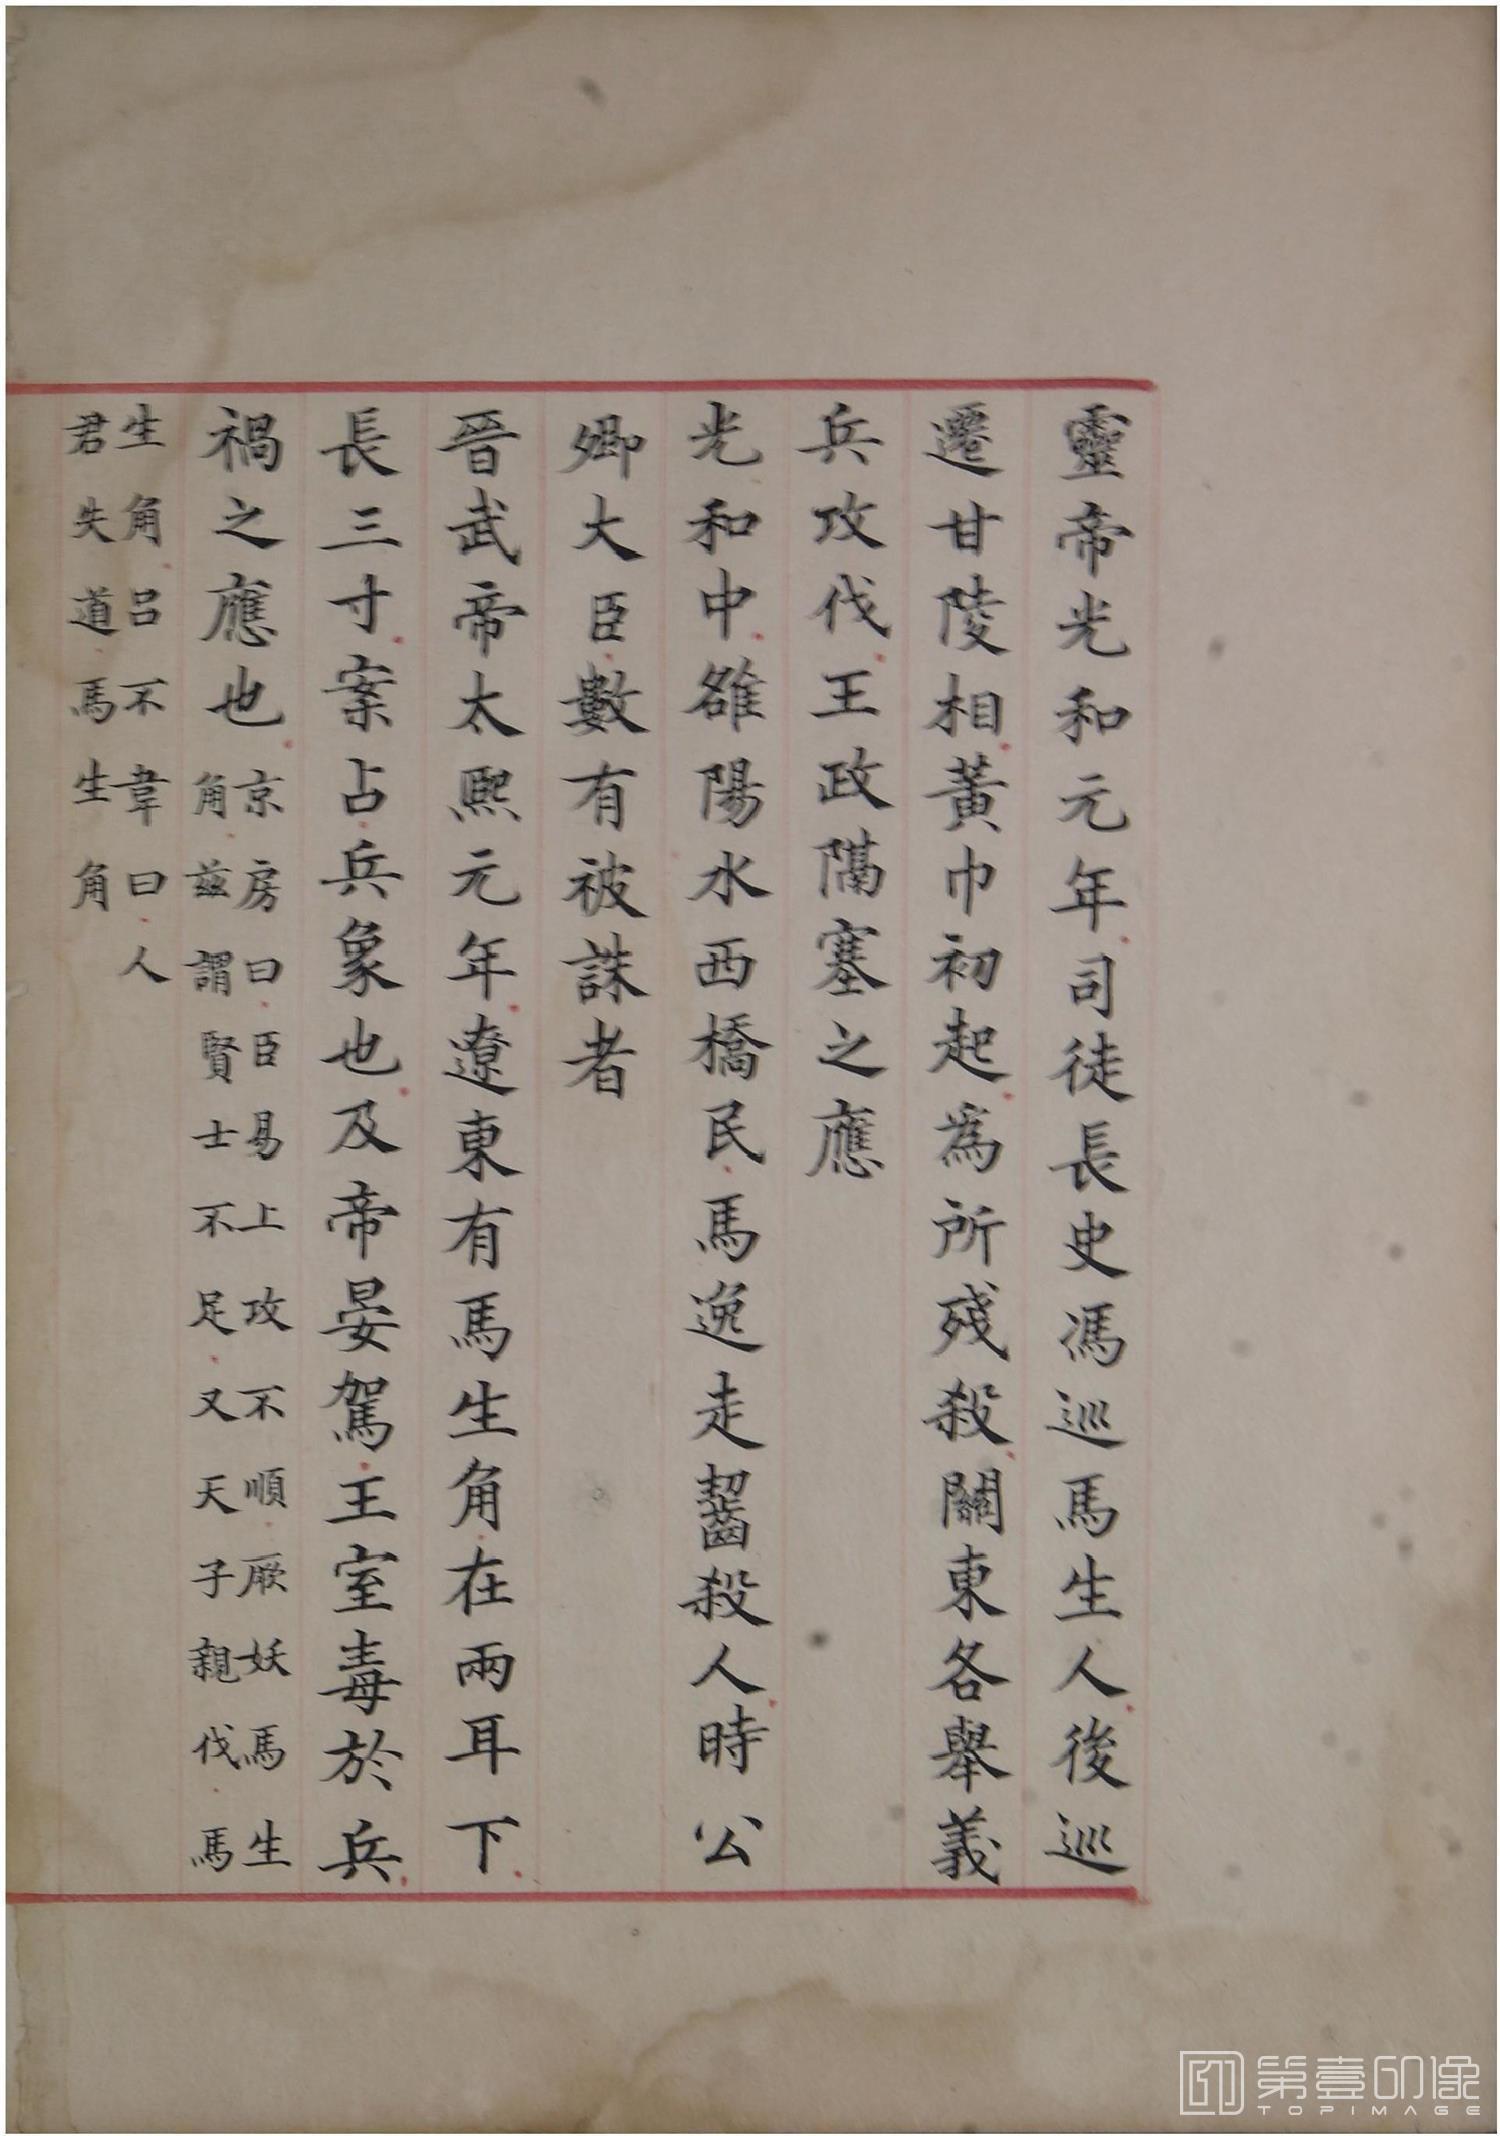 靈帝光和元年司徒長史馮巡馬生人後巡
遷甘陵相黃巾初起爲所殘殺關東各舉義
兵攻伐王政隔塞之應
光和中雒陽水西橋民馬逸走齧殺人時公
卿大臣數有被誅者
晉武帝太熙元年遼東有馬生角在兩耳下
長三寸案占兵象也及帝晏駕王室毒於兵
禍之應也
京房曰臣易上攻不順厥妖馬生
角茲謂賢士不足又天子親伐馬
生角呂不韋曰人
君失道馬生角
第壹印像
TOPIMAGE